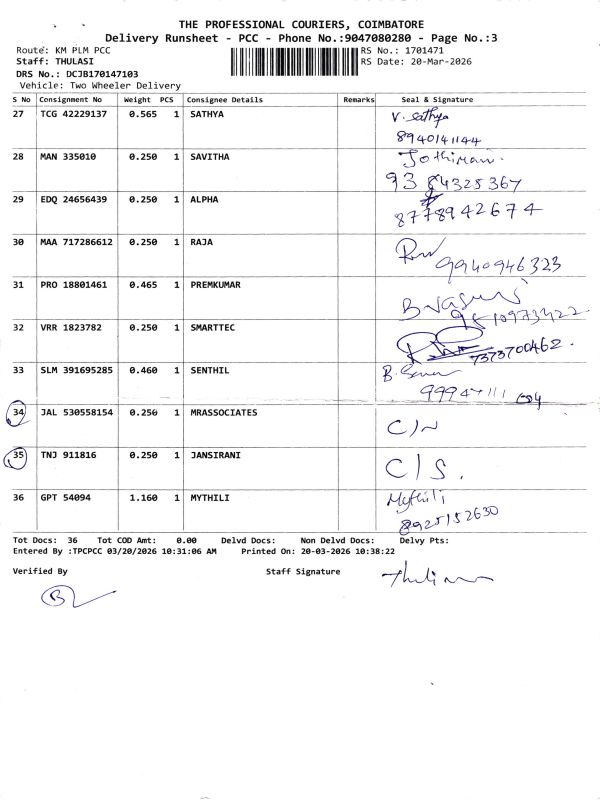 THE PROFESSIONAL COURIERS, COIMBATORE
Delivery Runsheet - PCC - Phone No.:9047080280 - Page No.:3
Route: KM PLM PCC RS No.: 1701471
Staff: THULASI RS Date: 20-Mar-2026
DRS No.: DCJB170147103
Vehicle: Two Wheeler Delivery
S No Consignment No Weight PCS Consignee Details Remarks Seal & Signature
27 TCG 42229137 0.565 1 SATHYA V. Sathya
8940141144
28 MAN 335010 0.250 1 SAVITHA Jothimani
93 84325367
29 EDQ 24656439 0.250 1 ALPHA
8778942674
30 MAA 717286612 0.250 1 RAJA
9940946323
31 PRO 18801461 0.465 1 PREMKUMAR
32 VRR 1823782 0.250 1 SMARTTEC
7373700462.
33 SLM 391695285 0.460 1 SENTHIL B.
34 JAL 530558154 0.250 1 MRASSOCIATES C/N
35 TNJ 911816 0.250 1 JANSIRANI C/S.
36 GPT 54094 1.160 1 MYTHILI Mythili
8925152630
Tot Docs: 36 Tot COD Amt: 0.00 Delvd Docs: Non Delvd Docs: Delvy Pts:
Entered By :TPCPCC 03/20/2026 10:31:06 AM Printed On: 20-03-2026 10:38:22
Verified By Staff Signature
B